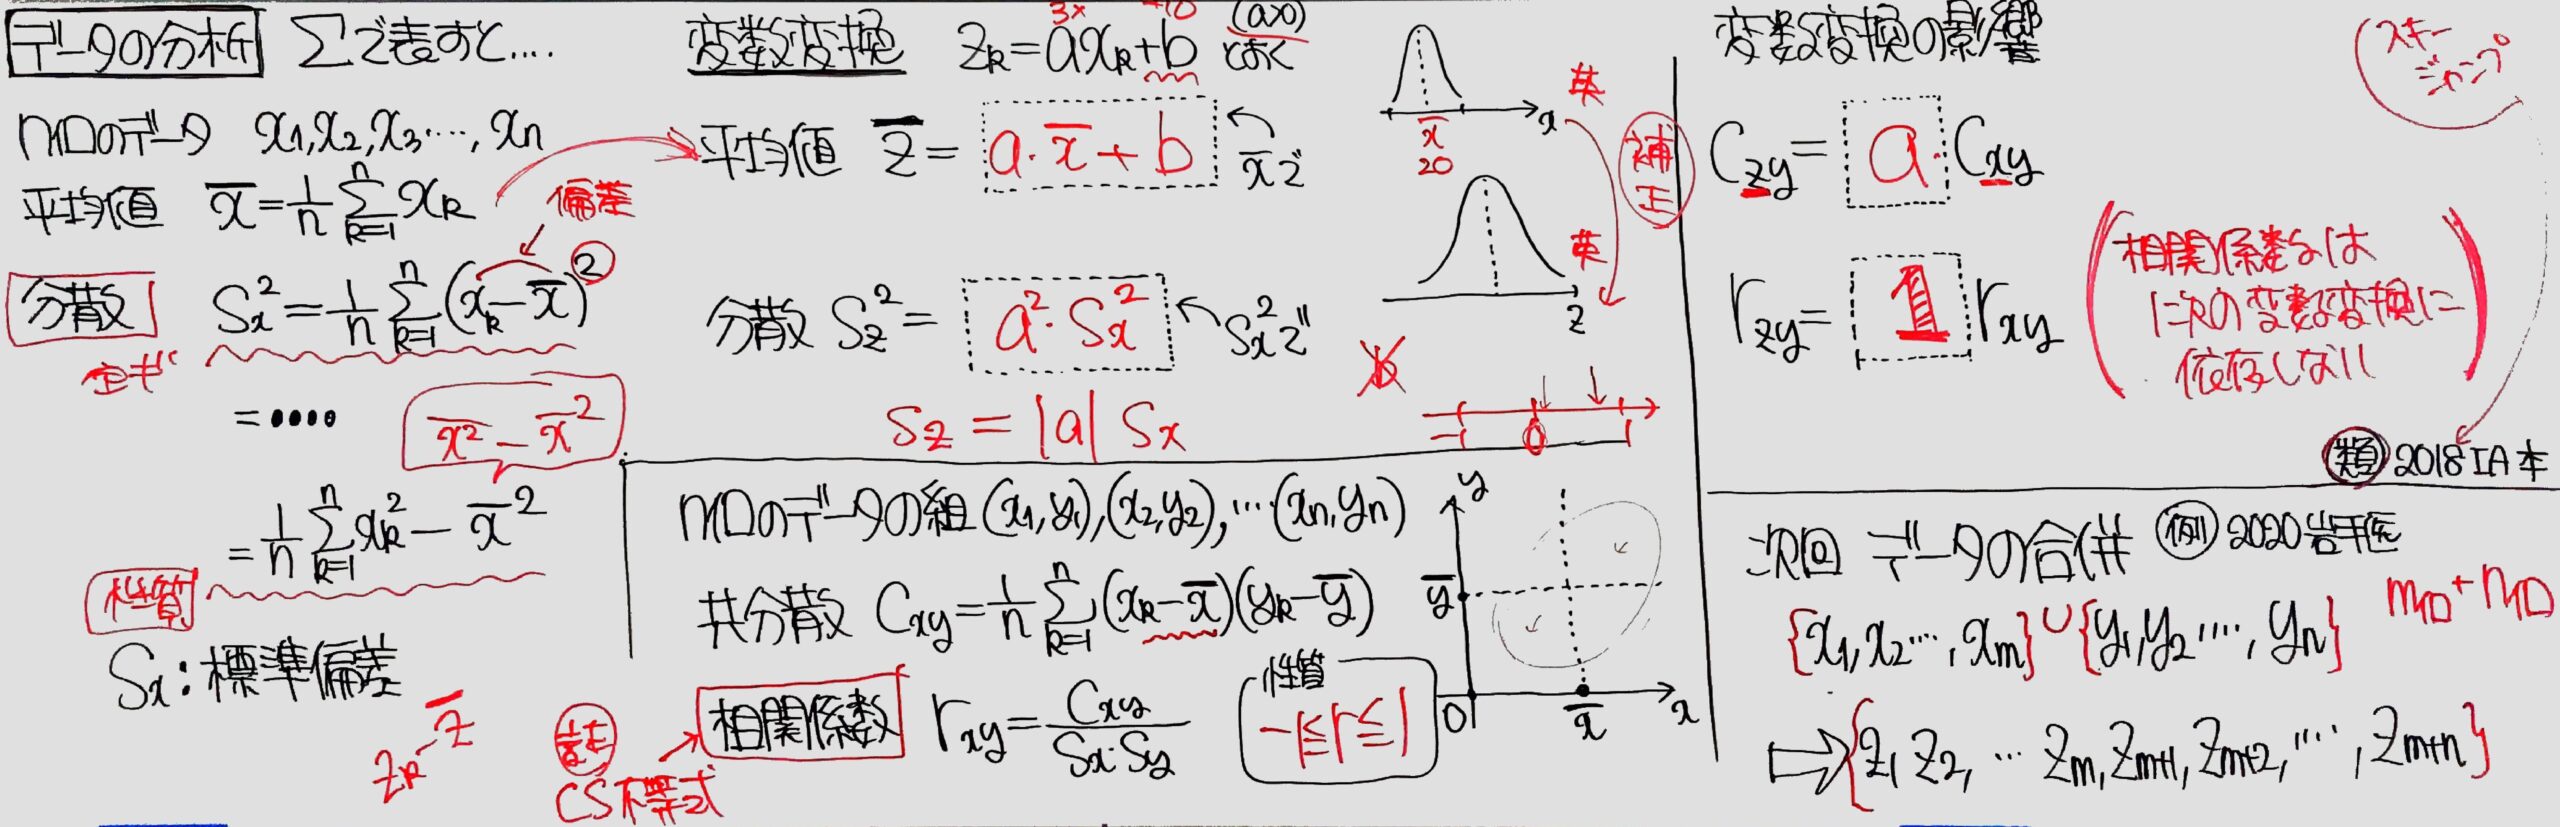 データの分析 Σで表すと....
n口のデータ x₁,x₂,x₃…,xn
平均値 x̄=1/n Σ[k=1→n] xk
偏差
分散 Sx²=1/n Σ[k=1→n](xk-x̄)²
=••••
x̄²の平均

=1/n Σ[k=1→n] xk²-x̄²
性質
Sx:標準偏差
zk-z̄
変数変換 zk=axk+b (a>0) とおく
3x +10
平均値 z̄=a・x̄+b x̄で
分散 Sz²=a²・Sx² Sx²で
Sz=|a|Sx
x
x̄
20
z
英
英
補正
0
n口のデータの組(x₁,y₁),(x₂,y₂),…(xn,yn)
共分散 Cxy=1/n Σ[k=1→n](xk-x̄)(yk-ȳ)
相関係数 rxy=Cxy/(Sx・Sy)
性質
-1≦r≦1
CS不等式
y
ȳ
0
x̄
x
変数変換の影響
スキー
ジャンプ
Czy=a・Cxy
rzy=1 rxy
(相関係数は
一次の変数変換に
依存しない)
類 2018 IA本
次回 データの合併 例 2020岩手医
{x₁,x₂…,xm}∪{y₁,y₂…,yn} m口+n口
⇒{z₁,z₂,…zm,zm+1,zm+2,…,zm+n}